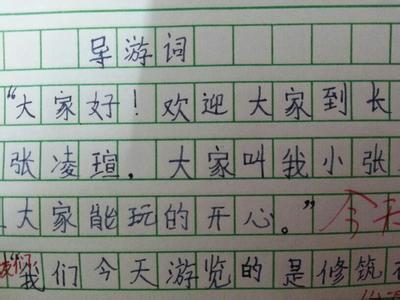 导游词
“大家好！欢迎大家到长
张凌瑄．大家叫我小张
大家能玩的开心。”今天
们：“我们今天游览的是修筑